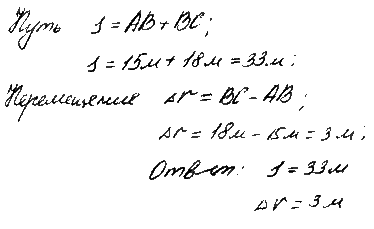 Путь s = AB + BC;
s = 15м + 18м = 33м;
Перемещение Δr = BC - AB;
Δr = 18м - 15м = 3м;
Ответ: s = 33м
Δr = 3м